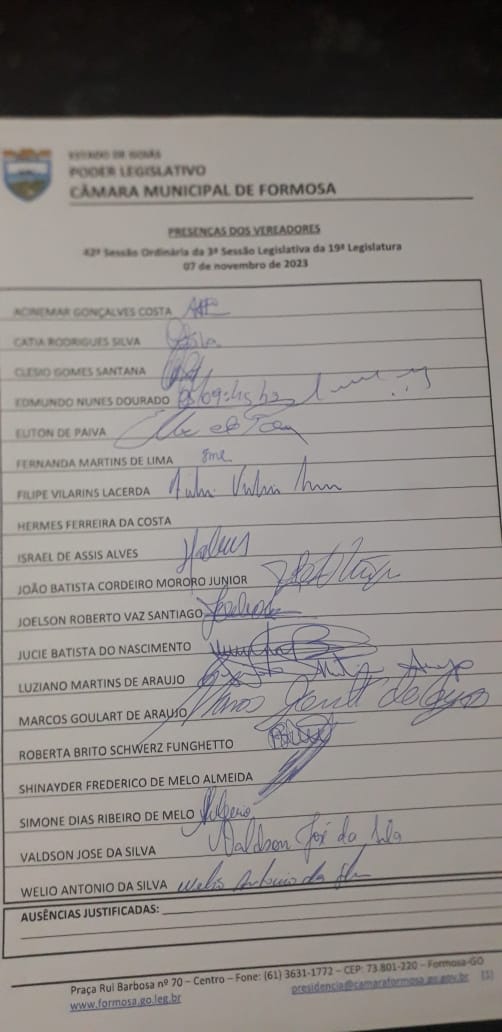 ESTADO DE GOIÁS
PODER LEGISLATIVO
CÂMARA MUNICIPAL DE FORMOSA
PRESENÇAS DOS VEREADORES
42ª Sessão Ordinária da 3ª Sessão Legislativa da 19ª Legislatura
07 de novembro de 2023
ACINEMAR GONÇALVES COSTA
CATIA RODRIGUES SILVA
CLESIO GOMES SANTANA
EDMUNDO NUNES DOURADO
ELITON DE PAIVA
FERNANDA MARTINS DE LIMA
FILIPE VILARINS LACERDA
HERMES FERREIRA DA COSTA
ISRAEL DE ASSIS ALVES
JOÃO BATISTA CORDEIRO MORORO JUNIOR
JOELSON ROBERTO VAZ SANTIAGO
JUCIE BATISTA DO NASCIMENTO
LUZIANO MARTINS DE ARAUJO
MARCOS GOULART DE ARAUJO
ROBERTA BRITO SCHWERZ FUNGHETTO
SHINAYDER FREDERICO DE MELO ALMEIDA
SIMONE DIAS RIBEIRO DE MELO
VALDSON JOSE DA SILVA Valdson José da Silva
WELIO ANTONIO DA SILVA Welio Antonio da Silva
AUSÊNCIAS JUSTIFICADAS:
Praça Rui Barbosa nº 70 – Centro – Fone: (61) 3631-1772 – CEP: 73.801-220 – Formosa-GO
www.formosa.go.leg.br presidencia@camaraformosa.go.gov.br [1]